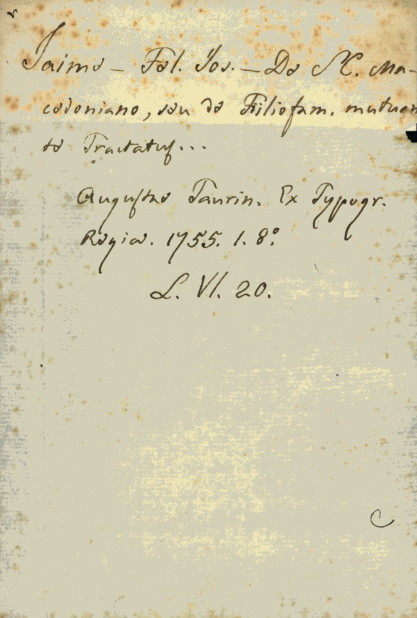 Jaime – Fel. Jos. – De SC. Ma-
cedoniano, seu de Filiofam. mutuan
te Tractatus...
Augustae Taurin. Ex Typogr.
Regia. 1755. 1. 8.º
L. VI. 20.